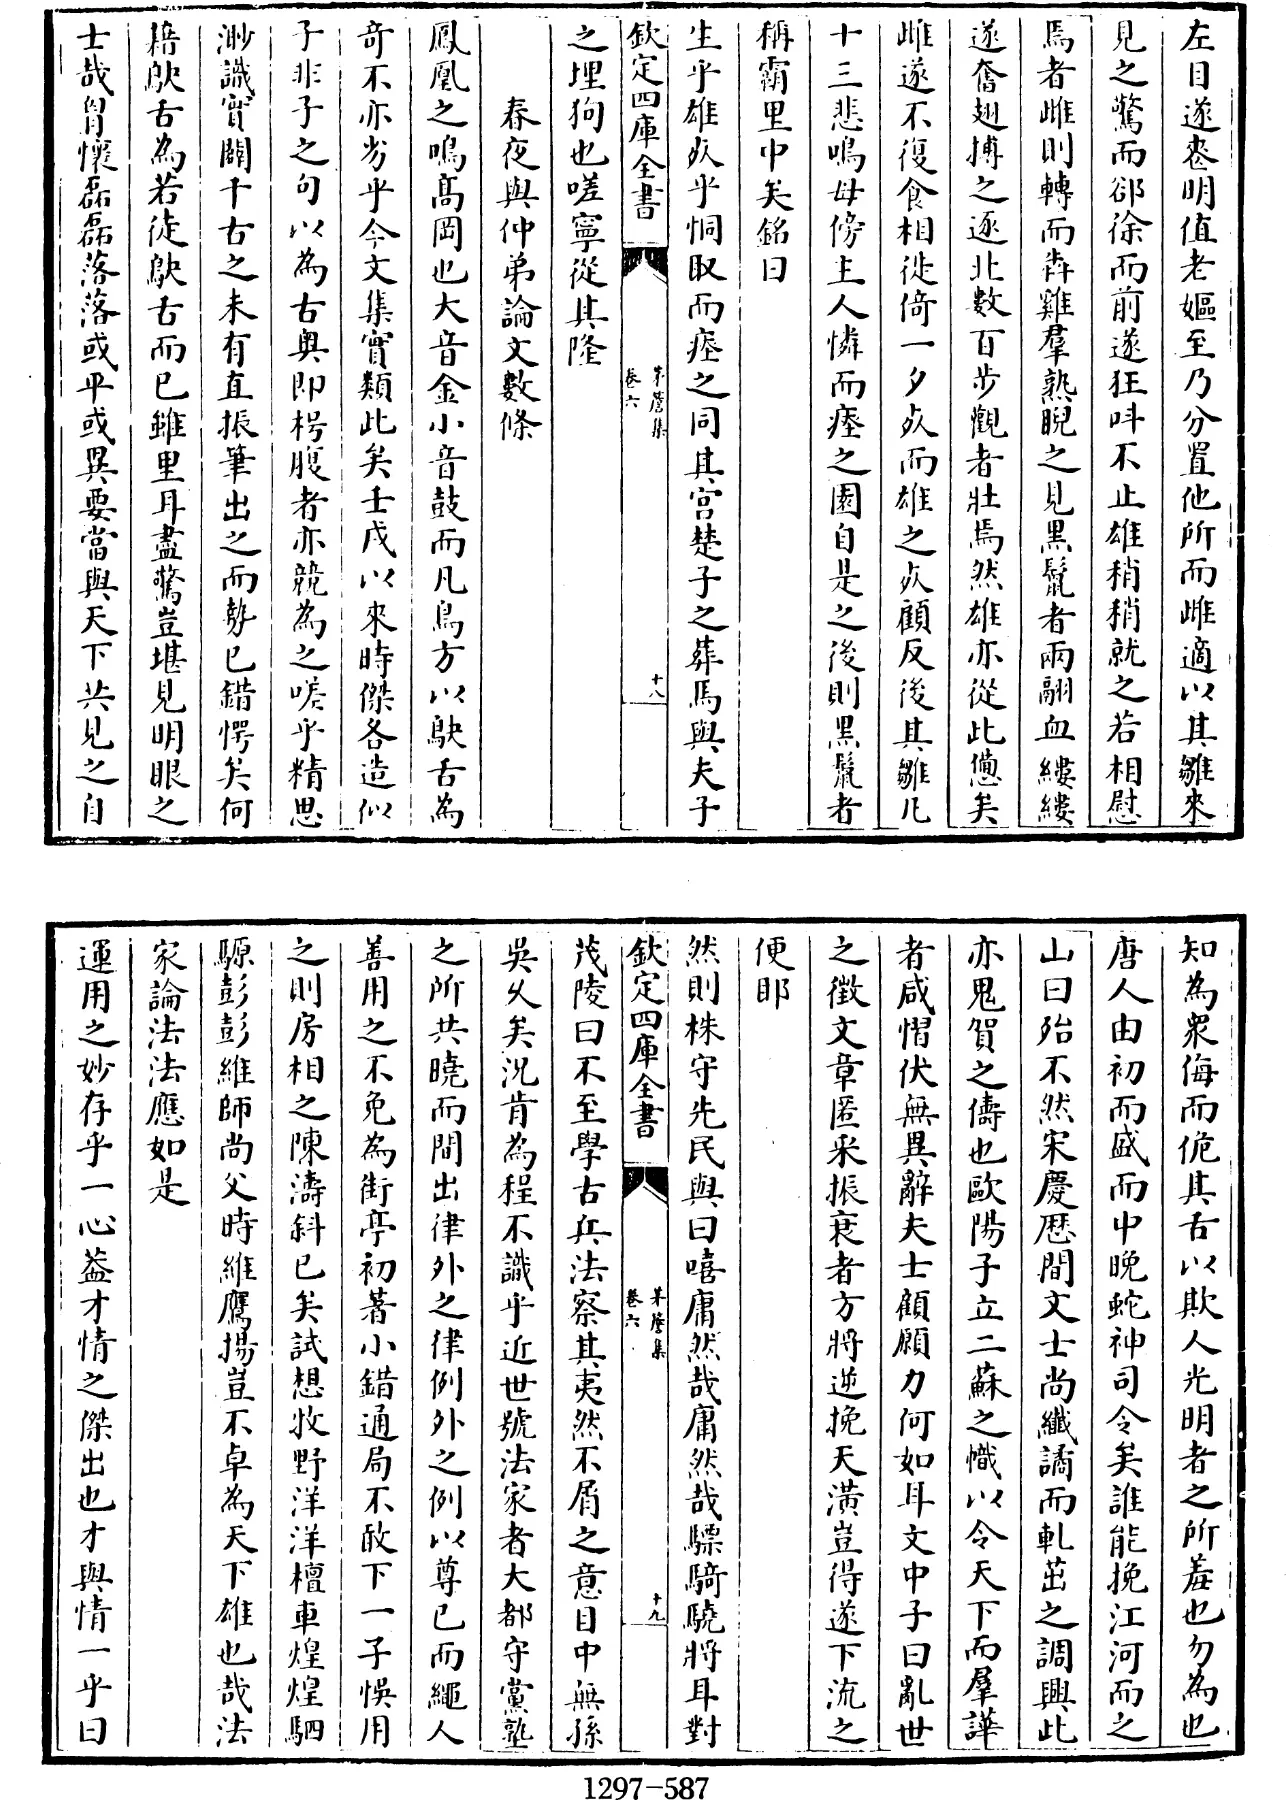 左目遂喪明值老嫗至乃分置他所而雌適以其雛來
見之驚而郤徐而前遂狂呌不止雄稍稍就之若相慰
焉者雌則轉而犇雞羣熟睨之見黒鬣者兩翮血縷縷
遂奮翅搏之逐北數百步觀者壯焉然雄亦從此憊矣
雌遂不復食相徙倚一夕㱙而雄之㱙顧反後其雛凡
十三悲鳴母傍主人憐而瘞之園自是之後則黒鬣者
稱霸里中矣銘曰
生乎雄㱙乎恫取而瘞之同其宫楚子之葬馬與夫子
欽定四庫全書
茅簷集
卷六
十八
之埋狗也嗟寧從其隆
春夜與仲弟論文數條
鳳凰之鳴髙岡也大音金小音鼓而凡鳥方以鴃舌為
奇不亦劣乎今文集實類此矣壬戌以來時傑各造似
子非子之句以為古奥即枵腹者亦競為之嗟乎精思
渺識實闢千古之未有直振筆出之而勢已錯愕矣何
藉鴃舌為若徒鴃舌而已雖里耳盡驚豈堪見明眼之
士哉胷懷磊磊落落或平或異要當與天下共見之自
知為衆侮而佹其舌以欺人光明者之所羞也勿為也
唐人由初而盛而中晚蛇神司令矣誰能挽江河而之
山曰殆不然宋慶厯間文士尚纎譎而軋茁之調興此
亦鬼賀之儔也歐陽子立二蘇之幟以令天下而羣譁
者咸慴伏無異辭夫士顧願力何如耳文中子曰亂世
之徵文章匿采振衰者方將逆挽天潢豈得遂下流之
便耶
然則株守先民與曰嘻庸然哉庸然哉驃騎驍將耳對
欽定四庫全書
茅簷集
卷六
十九
茂陵曰不至學古兵法察其夷然不屑之意目中無孫
吳乆矣況肯為程不識乎近世號法家者大都守黨塾
之所共曉而間出律外之律例外之例以尊已而繩人
善用之不免為街亭初著小錯通局不敢下一子悞用
之則房相之陳濤斜已矣試想牧野洋洋檀車煌煌駟
騵彭彭維師尚父時維鷹揚豈不卓為天下雄也哉法
家論法法應如是
運用之妙存乎一心葢才情之傑出也才與情一乎曰
1297-587